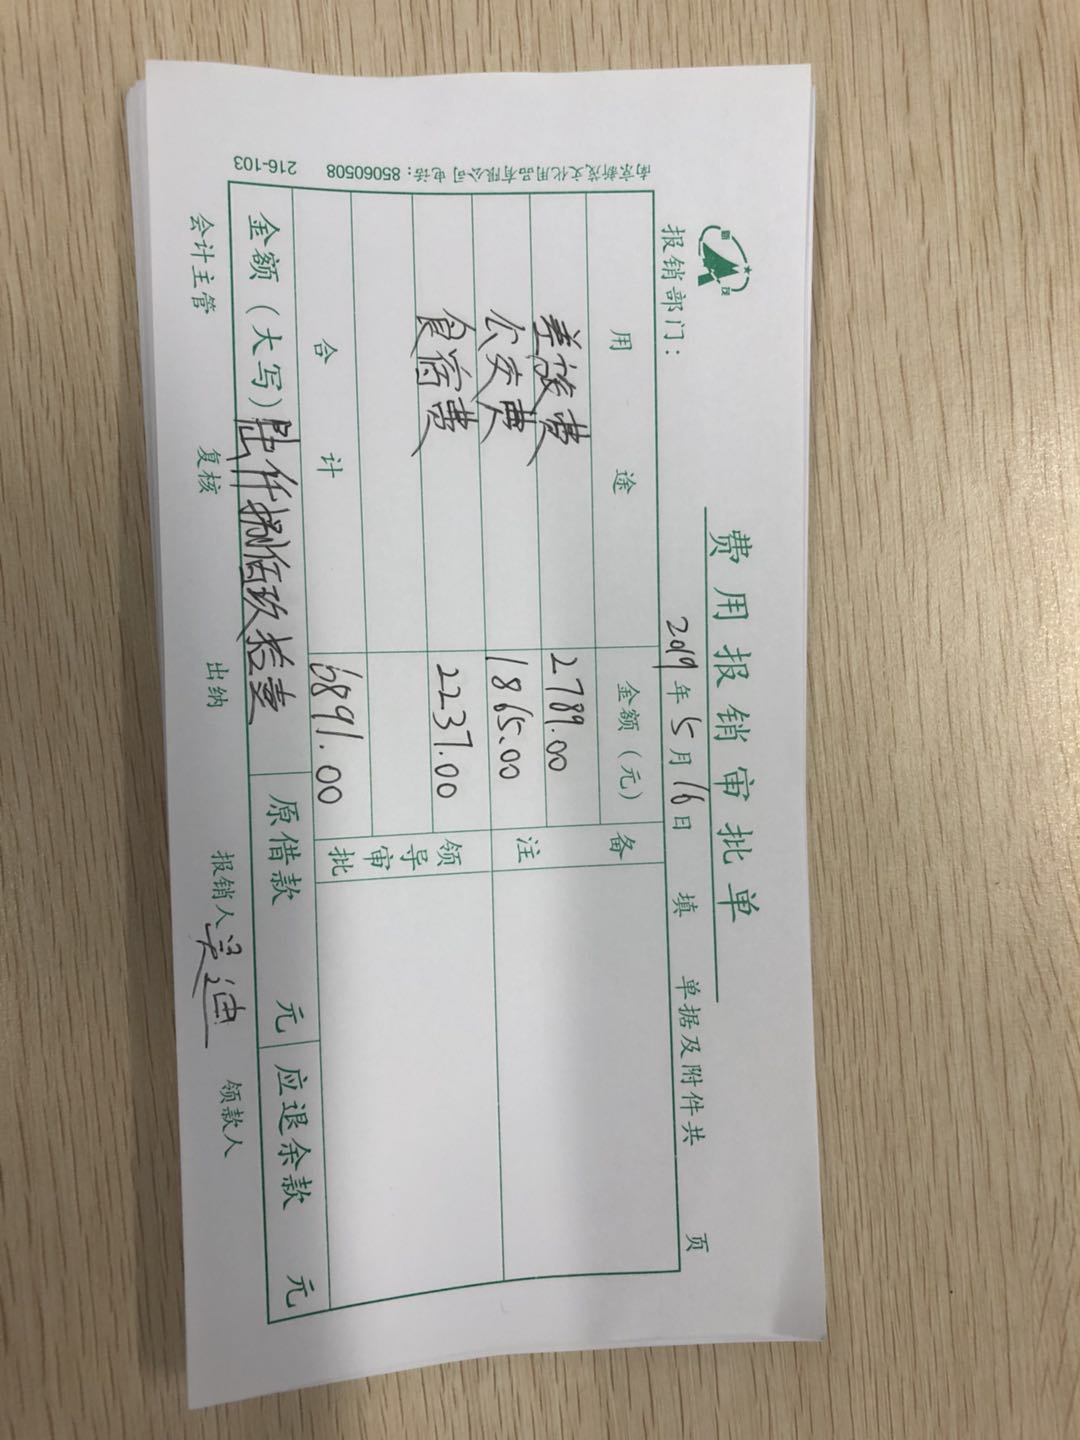 费用报销审批单
报销部门： 2019年5月16日 填 单据及附件共 页
用途 金额（元） 备注
差旅费 2789.00
公交费 1865.00
食宿费 2237.00
领导审批
合计 6891.00
金额（大写）陆仟捌佰玖拾壹 原借款 元 应退余款 元
会计主管 复核 出纳 报销人 吴迪 领款人
南京新茂文化用品有限公司 电话：85060508 216-103